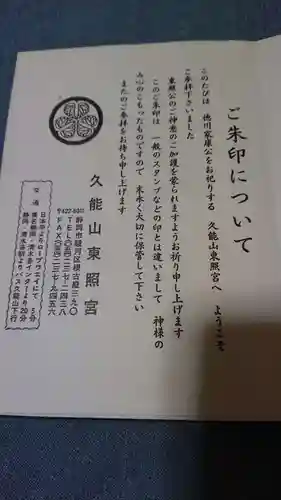 ご朱印について
このたびは 徳川家康公をお祀りする 久能山東照宮へ ようこそ
ご参拝下さいました
東照公のご神恵のご加護を蒙られますようお祈り申し上げます
このご朱印は 一般のスタンプなどの印とは違いまして 神様の
み心のこもったものですので 末永く大切に保管して下さい
またのご参拝をお待ち申し上げます
久能山東照宮
〒422-8011
静岡市駿河区根古屋三九〇
TEL〇五四-二三七-二四三八
FAX〇五四-二三七-九四五六
交通
日本平よりロープウェイにて 5分
東名静岡・清水各インターより20分
静岡・清水各駅よりバス久能山下行